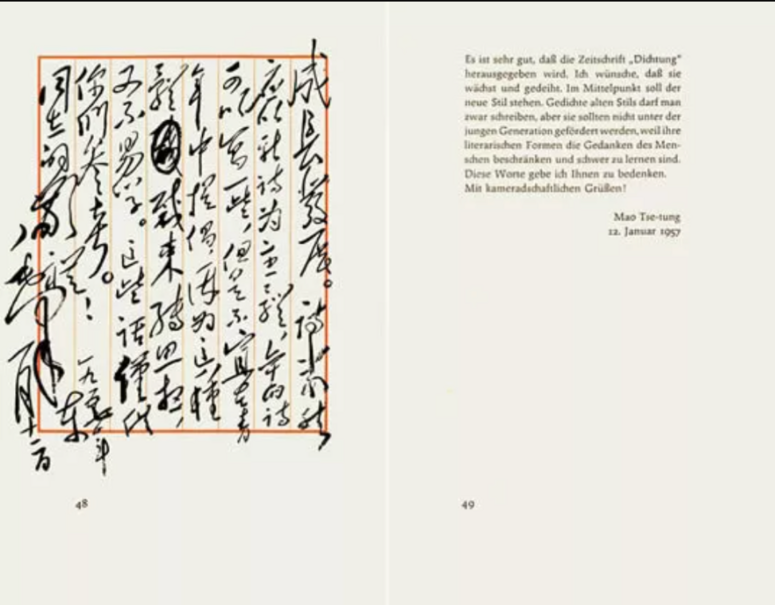 成長發展。詩當然
应以新詩为主體，旧詩
可以写一些，但是不宜在青
年中提倡，因为这種
體裁束縛思想，
又不易学。这些话僅供
你们參考。
同志的敬禮！
毛澤東
一九五七年
一月十二日
48
Es ist sehr gut, daß die Zeitschrift „Dichtung“
herausgegeben wird. Ich wünsche, daß sie
wächst und gedeiht. Im Mittelpunkt soll der
neue Stil stehen. Gedichte alten Stils darf man
zwar schreiben, aber sie sollten nicht unter der
jungen Generation gefördert werden, weil ihre
literarischen Formen die Gedanken des Men-
schen beschränken und schwer zu lernen sind.
Diese Worte gebe ich Ihnen zu bedenken.
Mit kameradschaftlichen Grüßen!
Mao Tse-tung
12. Januar 1957
49